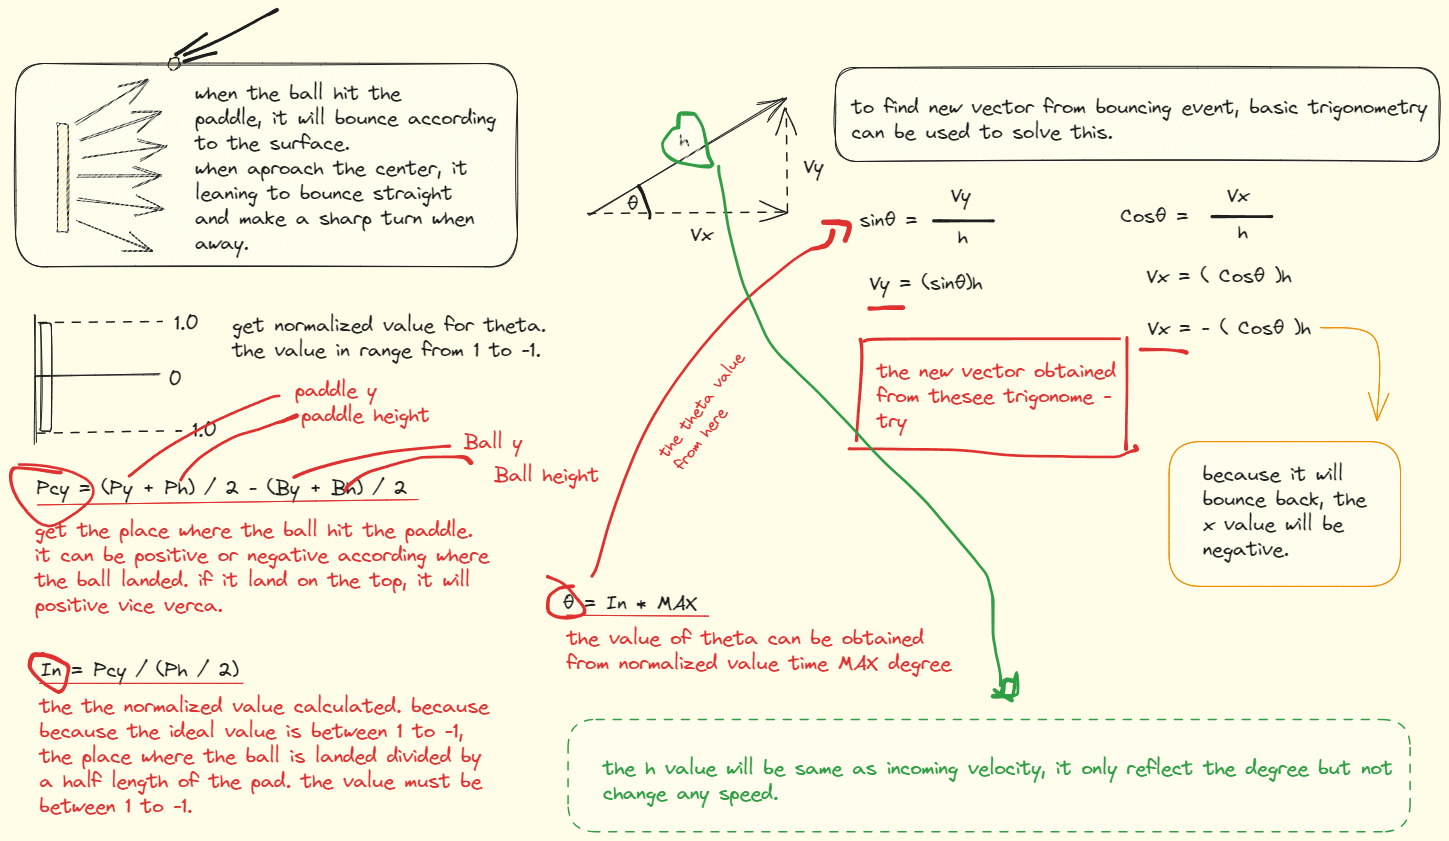 when the ball hit the
paddle, it will bounce according
to the surface.
when aproach the center, it
leaning to bounce straight
and make a sharp turn when
away.
1.0
0
1.0
get normalized value for theta.
the value in range from 1 to -1.
paddle y
paddle height
Ball y
Ball height
Pcy = (Py + Ph) / 2 - (By + Bh) / 2
get the place where the ball hit the paddle.
it can be positive or negative according where
the ball landed. if it land on the top, it will
positive vice verca.
In = Pcy / (Ph / 2)
the the normalized value calculated. because
because the ideal value is between 1 to -1,
the place where the ball is landed divided by
a half length of the pad. the value must be
between 1 to -1.
h
θ
Vx
Vy
the theta value
from here
θ = In * MAX
the value of theta can be obtained
from normalized value time MAX degree
to find new vector from bouncing event, basic trigonometry
can be used to solve this.
sinθ = Vy / h
Cosθ = Vx / h
Vy = (sinθ)h
Vx = ( Cosθ )h
Vx = - ( Cosθ )h
the new vector obtained
from thesee trigonome -
try
because it will
bounce back, the
x value will be
negative.
the h value will be same as incoming velocity, it only reflect the degree but not
change any speed.